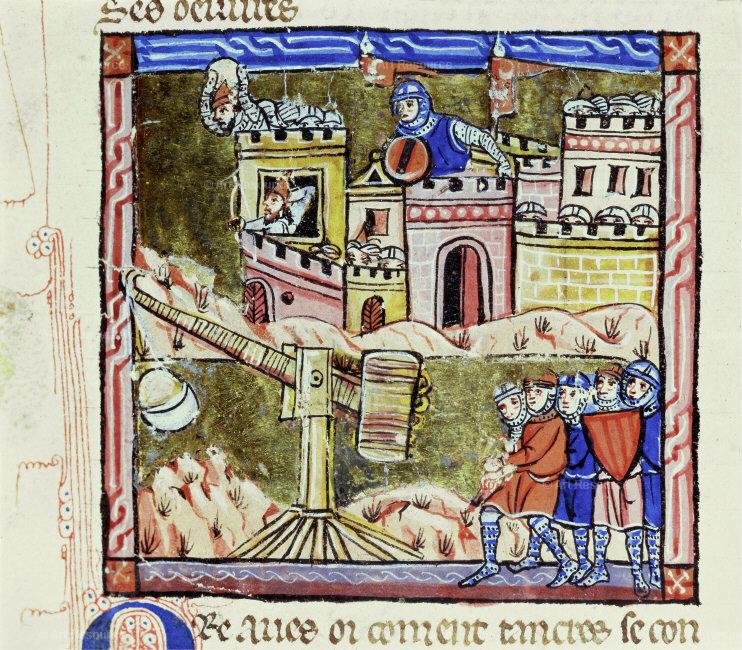 Ses oeuures
Re aues oi coment tancres se con